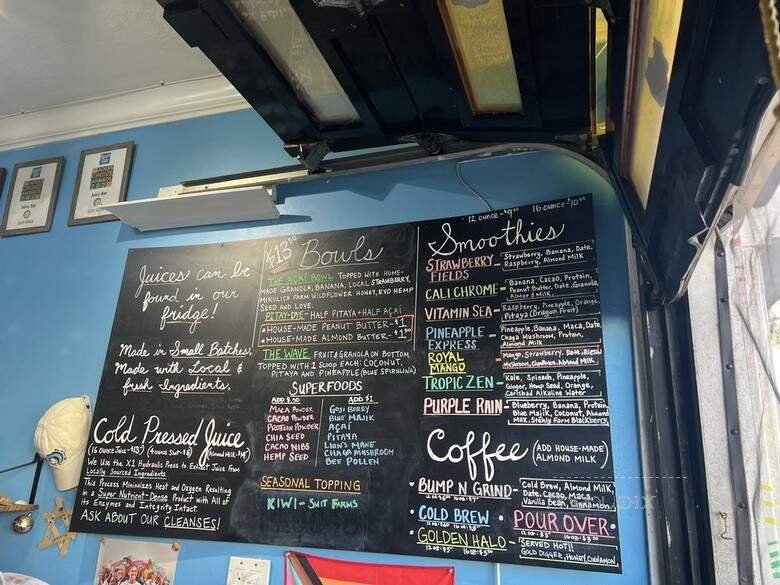 Juices can be
found in our
fridge!
Made in Small Batches.
Made with Local &
fresh Ingredients.
Cold Pressed Juice
We Use the X1 Hydraulic Press to Extract Juice From
Locally Sourced Ingredients.
This Process Minimizes Heat and Oxygen Resulting
in a Super Nutrient-Dense Product with All of
its Enzymes and Integrity Intact
ASK ABOUT OUR CLEANSES!
Bowls
THE AÇAI BOWL TOPPED WITH HOME-
MADE GRANOLA, BANANA, LOCAL STRAWBERRY,
FARM WILDFLOWER HONEY, HEMP
SEED AND LOVE.
PITAY-DYE- HALF PITAYA + HALF AÇAI
*HOUSE-MADE PEANUT BUTTER- $1
*HOUSE-MADE ALMOND BUTTER-
THE WAVE FRUIT & GRANOLA ON BOTTOM
TOPPED WITH 1 SCOOP EACH: COCONUT,
PITAYA AND PINEAPPLE (BLUE SPIRULINA)
SUPERFOODS
ADD $.50
MACA POWDER
CACAO POWDER
PROTEIN POWDER
CHIA SEED
CACAO NIBS
HEMP SEED
ADD $1
GOJI BERRY
BLUE MAJIK
AÇAI
PITAYA
LION'S MANE
CHAGA MUSHROOM
BEE POLLEN
SEASONAL TOPPING
KIWI - FARMS
12 ounce 16 ounce
Smoothies
STRAWBERRY FIELDS - Strawberry, Banana, Date,
Raspberry, Almond Milk
CALI CHROME - Banana, Cacao, Protein,
Peanut Butter, Date, Granola,
Almond Milk
VITAMIN SEA - Raspberry, Pineapple, Orange,
Pitaya (Dragon Fruit)
PINEAPPLE EXPRESS - Pineapple, Banana, Maca, Date,
Chaga Mushroom, Protein,
Almond Milk
ROYAL MANGO - Mango, Strawberry, Date, Reishi
Mushroom, Cinnamon, Almond Milk
TROPIC ZEN - Kale, Spinach, Pineapple,
Ginger, Hemp Seed, Orange,
Carlsbad Alkaline Water
PURPLE RAIN - Blueberry, Banana, Protein
Blue Majik, Coconut, Almond
Milk, Stehly Farm Blackberry
Coffee (ADD HOUSE-MADE)
ALMOND MILK
BUMP N GRIND - Cold Brew, Almond Milk,
Date, Cacao, Maca,
Vanilla Bean, Cinnamon
COLD BREW
POUR OVER
GOLDEN HALO - SERVED HOT!!
GOLD DIGGER, HONEY, CINNAMON